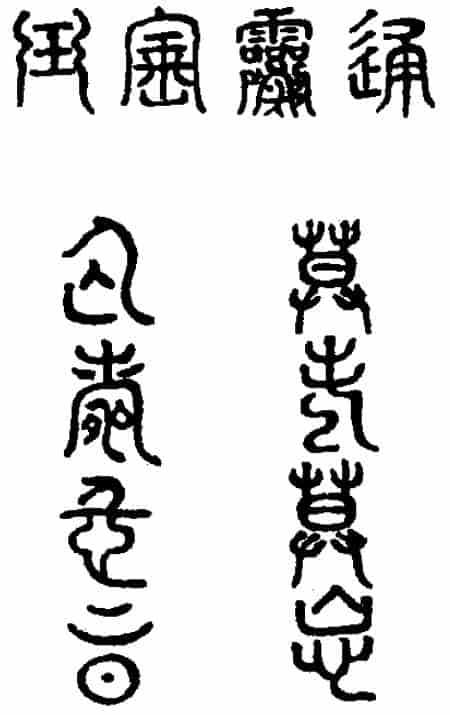 通靈寶玉
莫失莫忘
仙壽恆昌